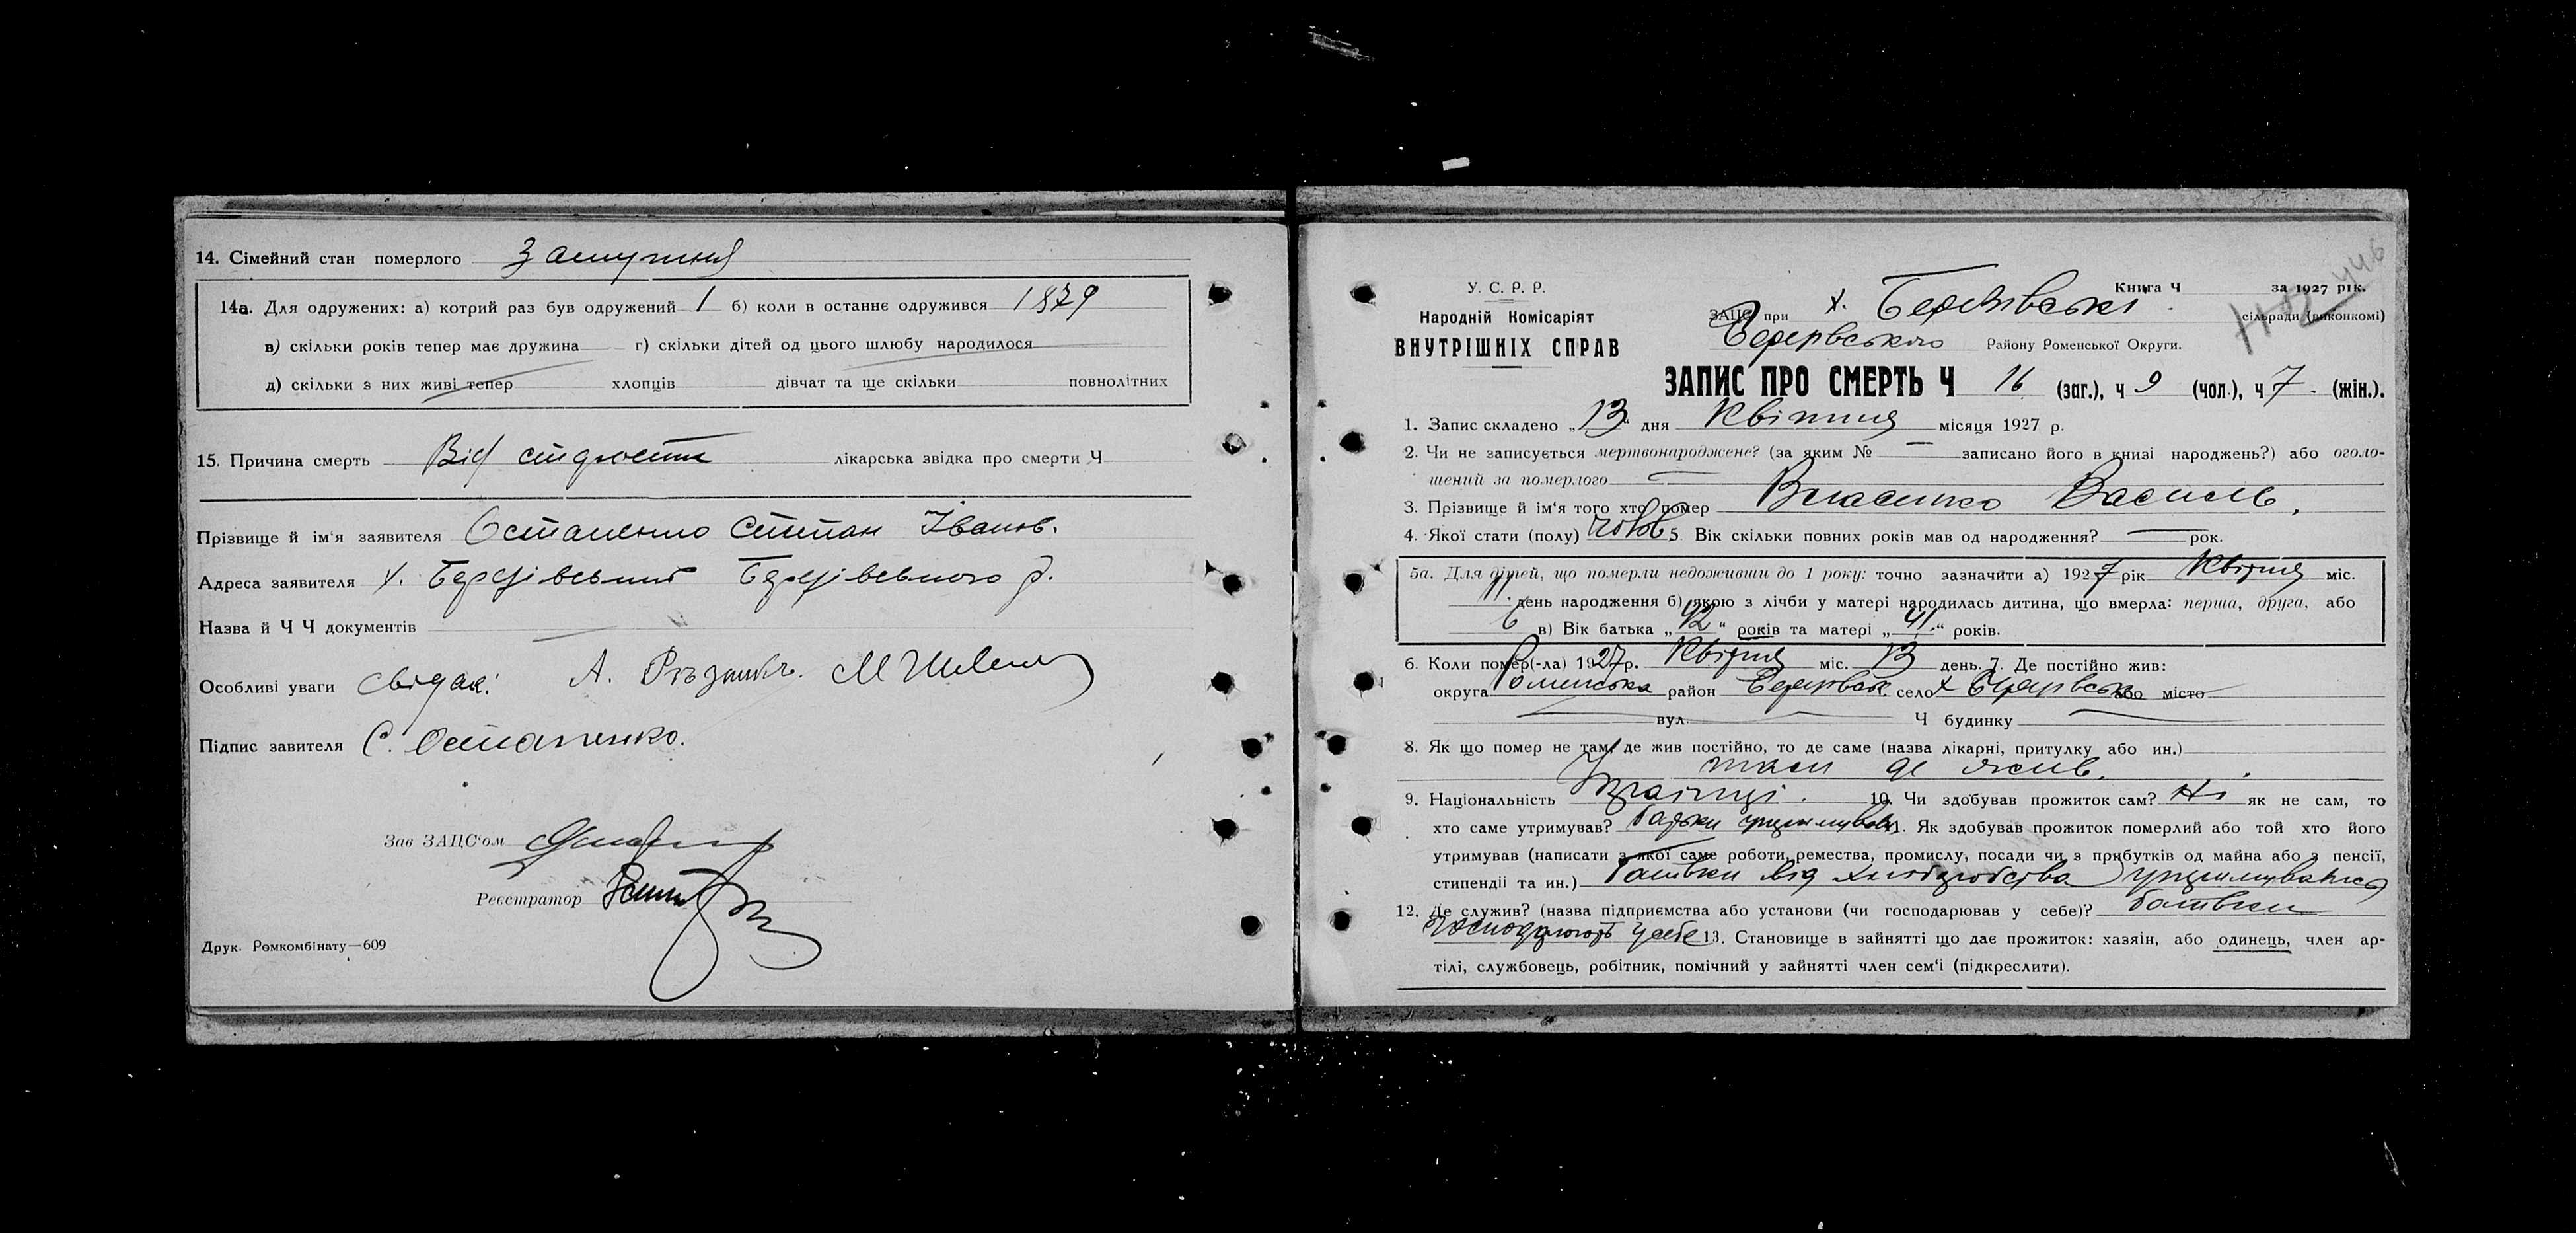 14. Сімейний стан померлого Замужня
14а. Для одружених: а) котрий раз був одружений 1 б) коли в останнє одружився 1879
в) скільки років тепер має дружина г) скільки дітей од цього шлюбу народилося
д) скільки з них живі тепер хлопців дівчат та ще скільки повнолітних
15. Причина смерть Від старости лікарська звідка про смерти Ч
Прізвище й ім'я заявителя Остапенко Степан Іванов.
Адреса заявителя х. Березівський Березівського р.
Назва й Ч Ч документів
Особливі уваги свідки: А.
Підпис завителя С. Остапенко.
Зав ЗАЦС'ом
Реєстратор
Друк. Ромкомбінату—609
Книга Ч за 1927 рік.
У. С. Р. Р.
Народній Комісаріят
ВНУТРІШНІХ СПРАВ
ЗАЦС при х. сільради (виконкомі)
Району Роменської Округи.
ЗАПИС ПРО СМЕРТЬ Ч 16 (заг.), ч 9 (чол.), ч 7. (жін.).
1. Запис складено „13" дня Квітня місяця 1927 р.
2. Чи не записується мертвонароджене? (за яким № — записано його в книзі народжень?) або оголо-
шений за померлого
3. Прізвище й ім'я того хто помер Власенко Василь.
4. Якої стати (полу) чолов 5. Вік скільки повних років мав од народження? — рок.
5а. Для дітей, що померли недоживши до 1 року: точно зазначити а) 1927 рік Квітня міс.
11. день народження б) якою з лічби у матері народилась дитина, що вмерла: перша, друга, або
6 в) Вік батька „42" років та матері „41." років.
6. Коли помер(-ла) 1927 р. Квітня міс. 13 день. 7. Де постійно жив:
округа Роменська район село х або місто
вул. Ч будинку
8. Як що помер не там, де жив постійно, то де саме (назва лікарні, притулку або ин.)
там де жив.
9. Національність Українці. 10. Чи здобував прожиток сам? Ні як не сам, то
хто саме утримував? батьки утримував 11. Як здобував прожиток померлий або той хто його
утримував (написати з якої саме роботи, ремества, промислу, посади чи з прибутків од майна або з пенсії,
стипендії та ин.) батьки від хліборобства утримувались
12. Де служив? (назва підприємства або установи (чи господарював у себе)? батьки
господарюють у себе 13. Становище в зайнятті що дає прожиток: хазяін, або одинець, член ар-
тілі, службовець, робітник, помічний у зайнятті член сем'і (підкреслити).